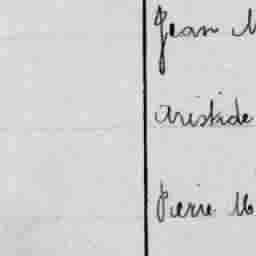 Jean M
Aristide
Pierre M